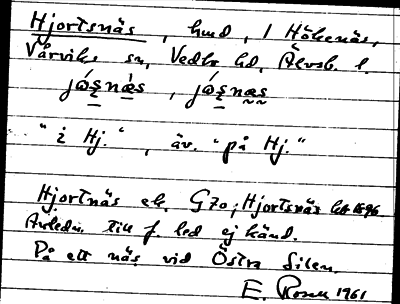 Hjortsnäs, hmd, i Hökenäs,
Vårviks sn, Vedbo hd, Älvsb. l.
jóş̠næ̠s, jóş̠næs
"i Hj.", äv. "på Hj."
Hjortnäs ek. G70; Hjortsnäs 1896
Avledn. till f. led ej känd.
På ett näs vid Östra Silen.
E. Rosen 1961